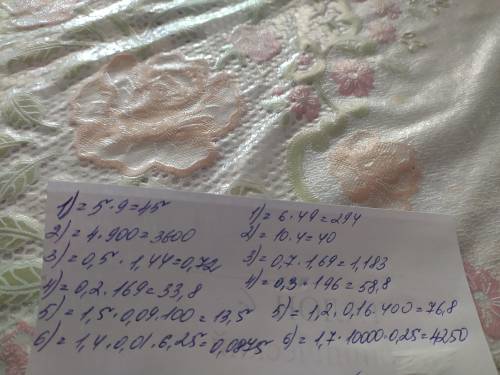 1) = 5·9=45
2) = 4·900=3600
3) = 0,5·1,44=0,72
4) = 0,2·169=33,8
5) = 1,5·0,09·100=13,5
6) = 1,4·0,01·6,25=0,0875
1) = 6·49=294
2) = 10·4=40
3) = 0,7·1,69=1,183
4) = 0,3·196=58,8
5) = 1,2·0,16·400=76,8
6) = 1,7·10000·0,25=4250